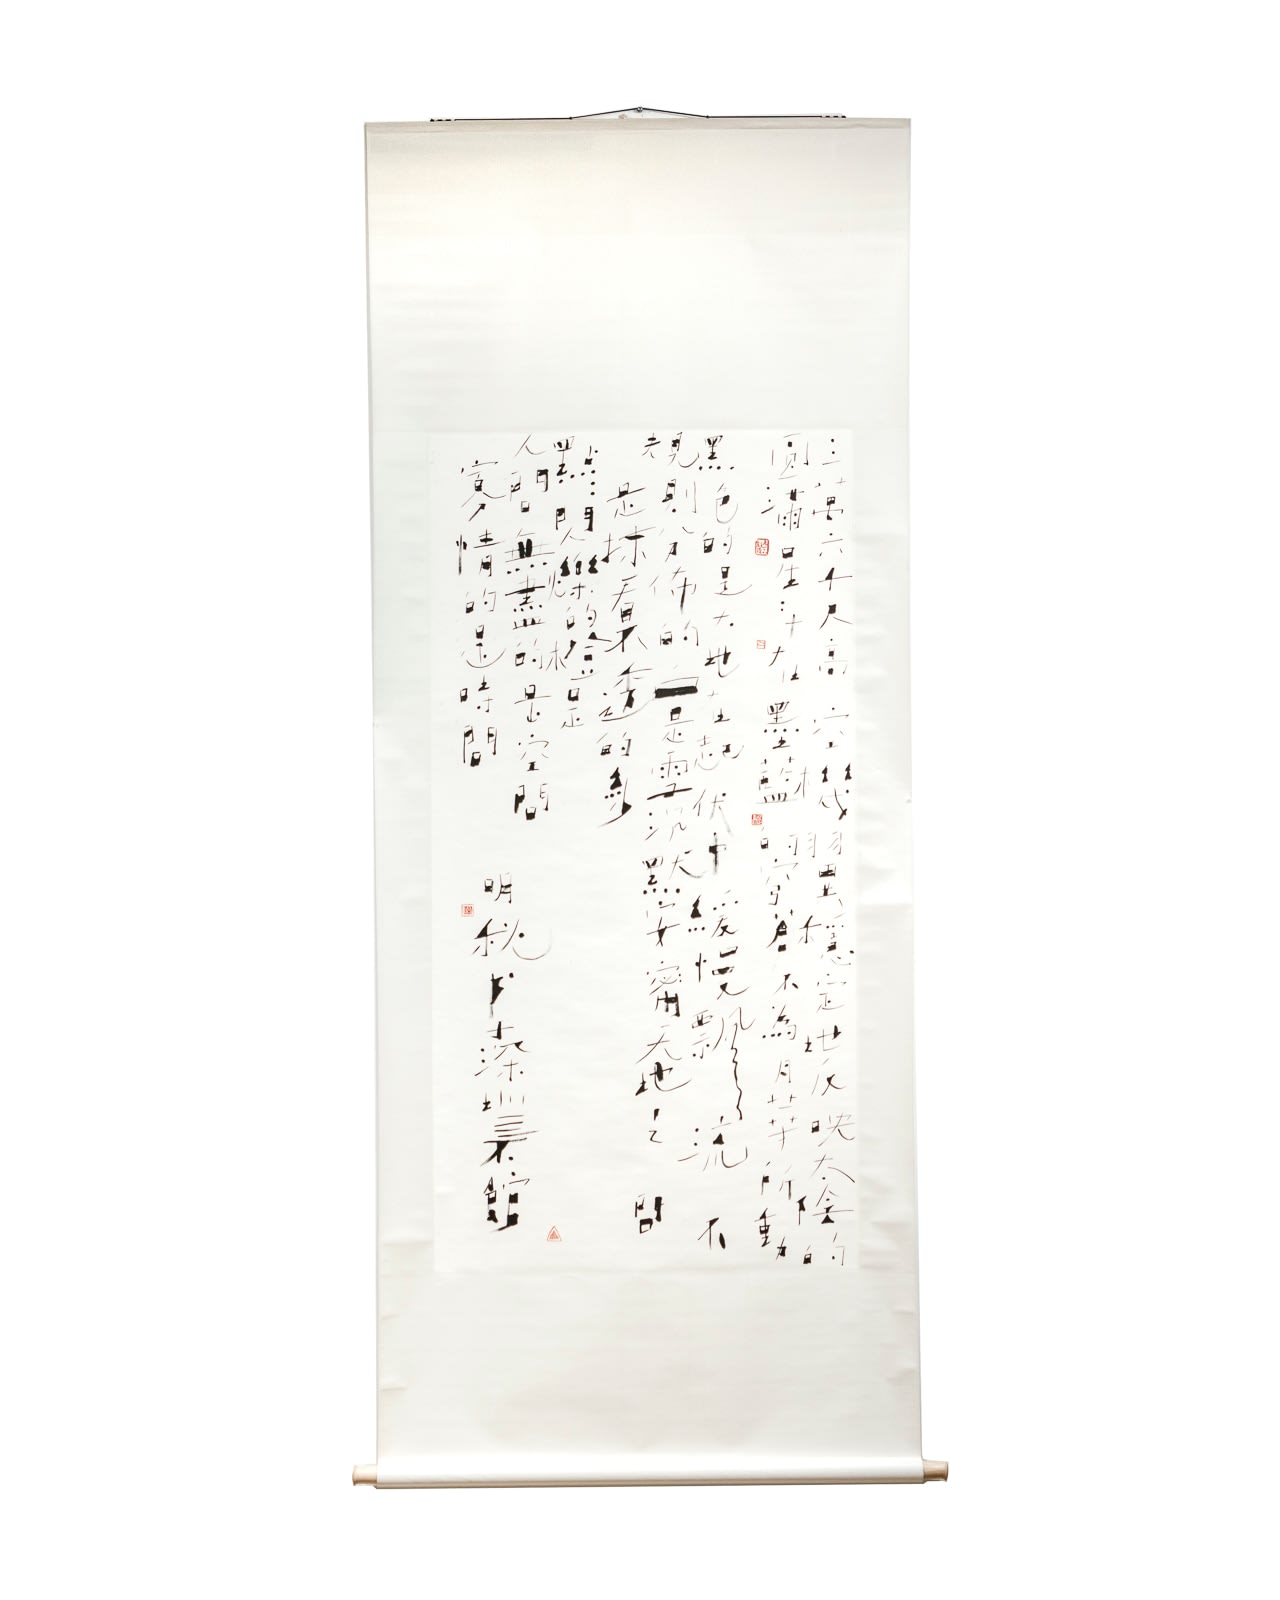 三萬六千尺高空機翼穩定地反映太陰的
圓滿星斗在墨藍的穹蒼不為月華所動
黑色的是大地在起伏中緩慢飄流不
規則分佈的白是雪沉默安甯天地之間
是抹看不透的
點點閃爍的燈是
人間無盡的是空間
寡情的是時間
明秋书深圳美館